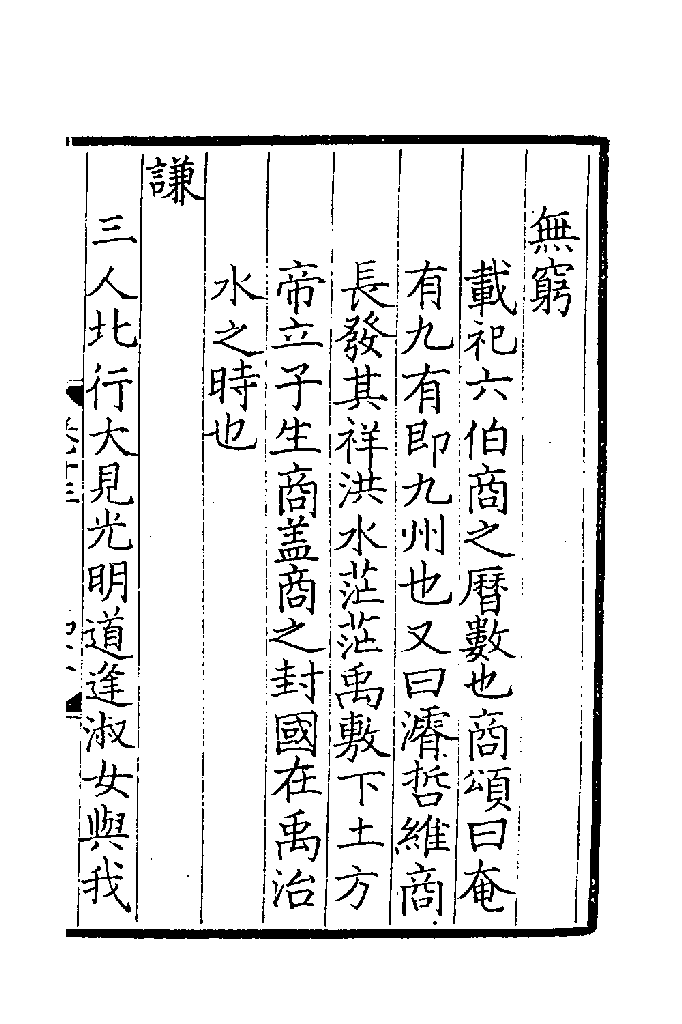 無窮
載祀六伯商之曆數也商頌曰奄
有九有即九州也又曰濬哲維商
長發其祥洪水茫茫禹敷下土方
帝立子生商盖商之封國在禹治
水之時也
謙
三人北行大見光明道逢淑女與我
卷十三